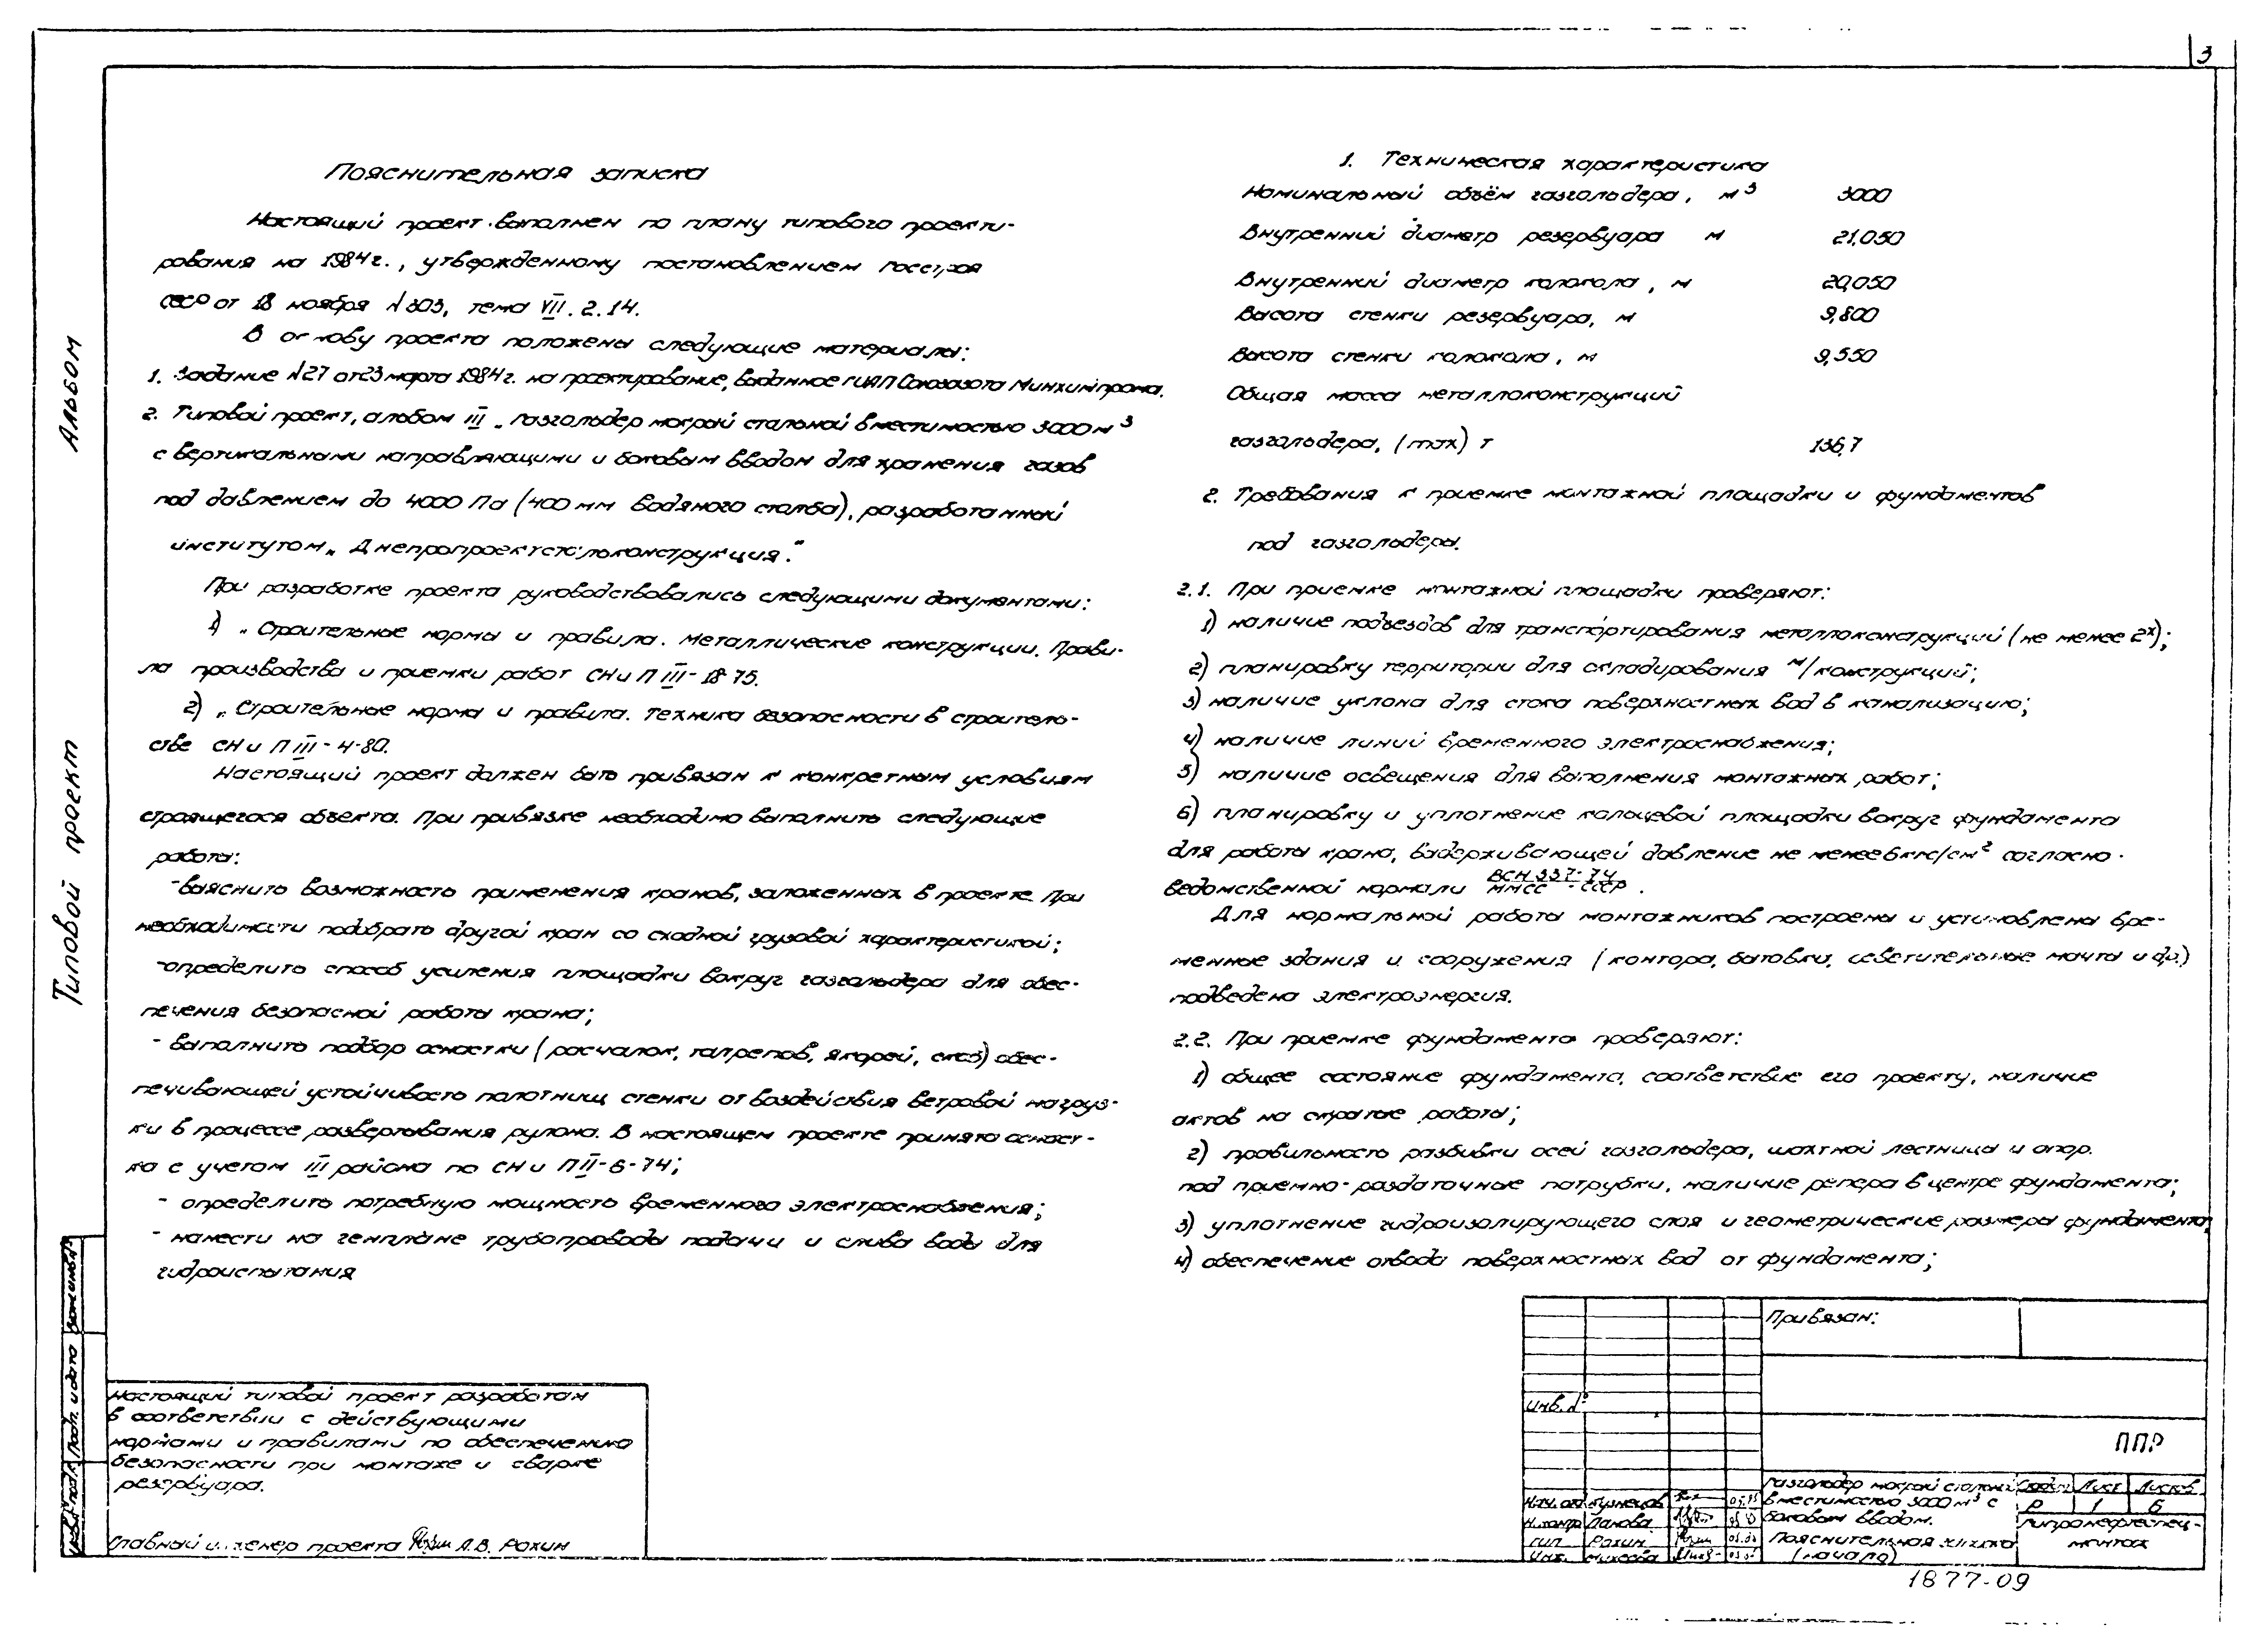 3
Пояснительная записка
Настоящий проект выполнен по плану типового проекти-
рования на 1984 г., утвержденному постановлением Госстроя
СССР от 18 ноября N 303, тема VII. 2. 14.
В основу проекта положены следующие материалы:
1. Задание N27 от 23 марта 1984 г. на проектирование, выданное ГИАП Союзазота Минхимпрома.
2. Типовой проект, альбом III „Газгольдер мокрый стальной вместимостью 3000 м³
с вертикальными направляющими и боковым вводом для хранения газов
под давлением до 4000 Па (400 мм водяного столба), разработанный
институтом „Днепропроектстальконструкция."
При разработке проекта руководствовались следующими документами:
1) „Строительные нормы и правила. Металлические конструкции. Прави-
ла производства и приемки работ СНиП III-18-75.
2) „Строительные норма и правила. Техника безопасности в строитель-
стве СНиП III-4-80.
Настоящий проект должен быть привязан к конкретным условиям
строящегося объекта. При привязке необходимо выполнить следующие
работы:
-выяснить возможность применения кранов, заложенных в проекте. При
необходимости подобрать другой кран со сходной грузовой характеристикой;
-определить способ усиления площадки вокруг газгольдера для обес-
печения безопасной работы крана;
- выполнить подбор оснастки (расчалок, талрепов, якорей, скоб) обес-
печивающей устойчивость полотнищ стенки от воздействия ветровой нагруз-
ки в процессе развертывания рулона. В настоящем проекте принята оснаст-
ка с учетом III района по СНиП II-6-74;
- определить потребную мощность временного электроснабжения;
- нанести на генплане трубопроводы подачи и слива воды для
гидроиспытания
1. Техническая характеристика
Номинальный объём газгольдера, м³ 3000
Внутренний диаметр резервуара м 21,050
Внутренний диаметр колокола, м 20,050
Высота стенки резервуара, м 9,800
Высота стенки колокола, м 9,550
Общая масса металлоконструкций
газгольдера, (max) т 136,7
2. Требования к приемке монтажной площадки и фундаментов
под газгольдеры.
2.1. При приемке монтажной площадки проверяют:
1) наличие подъездов для транспортирования металлоконструкций (не менее 2х);
2) планировку территории для складирования м/конструкций;
3) наличие уклона для стока поверхностных вод в канализацию;
4) наличие линий временного электроснабжения;
5) наличие освещения для выполнения монтажных работ;
6) планировку и уплотнение кольцевой площадки вокруг фундамента
для работы крана, выдерживающей давление не менее 6 кгс/см² согласно
ведомственной нормали ВСН 337-74
ММСС - СССР .
Для нормальной работы монтажников построены и установлены вре-
менные здания и сооружения (контора, бытовки, осветительные мачты и др.)
подведена электроэнергия.
2.2. При приемке фундамента проверяют:
1) общее состояние фундамента, соответствие его проекту, наличие
актов на скрытые работы;
2) правильность разбивки осей газгольдера, шахтной лестницы и опор.
под приемно-раздаточные патрубки, наличие репера в центре фундамента;
3) уплотнение гидроизолирующего слоя и геометрические размеры фундамента;
4) обеспечение отвода поверхностных вод от фундамента;
Типовой проект Альбом
Взам.инв.N
Подп. и дата
Инв.N подл.
Настоящий типовой проект разработан
в соответствии с действующими
нормами и правилами по обеспечению
безопасности при монтаже и сварке
резервуара.
Главный инженер проекта А.В. Рохин
Привязан:
Инв. N
ППР
Нач. отд Кузнецов
Н.контр Панова
ГИП Рохин
Инж. Михеева
Газгольдер мокрый стальной
вместимостью 3000 м³ с
боковым вводом.
Пояснительная записка
(начало)
Стадия Лист Листов
Р 1 6
Гипронефтеспец-
монтаж
1877-09